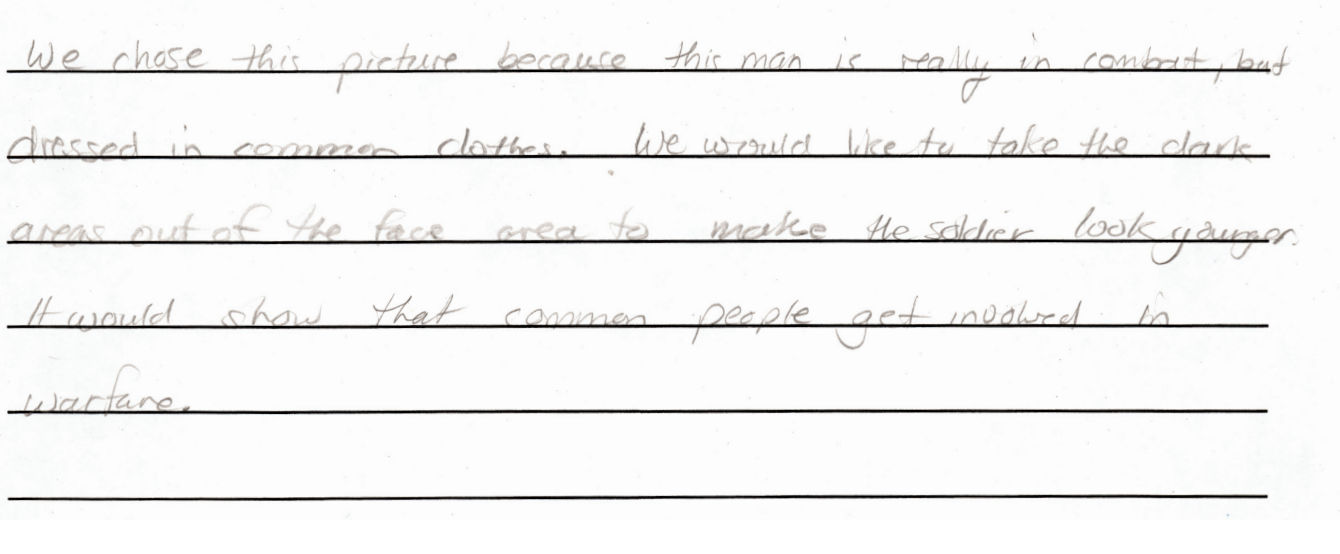 We chose this picture because this man is really in combat, but
dressed in common clothes. We would like to take the dark
areas out of the face area to make the soldier look younger.
It would show that common people get involved in
warfare.